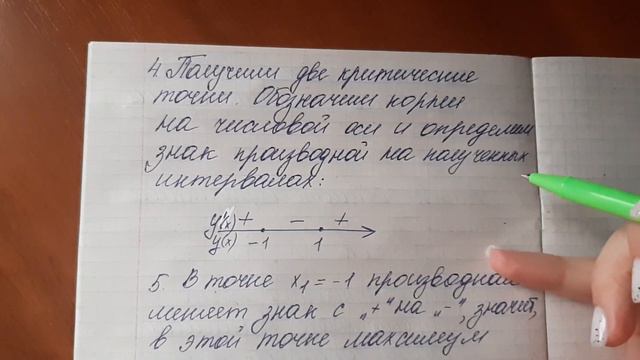 4. Получили две критические
точки. Обозначим корни
на числовой оси и определим
знак производной на полученных
интервалах:
y'(x) + - +
y(x) -1 1
5. В точке x₁ = -1 производная
меняет знак с „+" на „-", значит,
в этой точке максимум